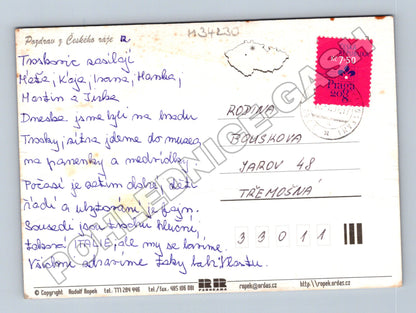 Pozdrav z Českého ráje
M34230
Troskovic zasílají
Káťa, Kája, Ivana, Hanka,
Martin a Jirka
Dneska jsme byli na hradu
Trosky, zítra jdeme do muzea
na panenky a medvídky.
Počasí je zatím dobré,
Řádí a ubytování je fajn.
Sousedi jsou trochu hluční,
ale my se bavíme.
Všichni zdravíme
7,50
Praga
2008
RODINA
BOUŠKOVA
JAROV 48
TŘEMOŠNÁ
33011
POHLEDNICE-GASH
© Copyright Rudolf Ropek tel. 777 284 446 tel./fax. 485 106 081
PANORAMA
ropek@ordas.cz
http:\\ropek.ordas.cz